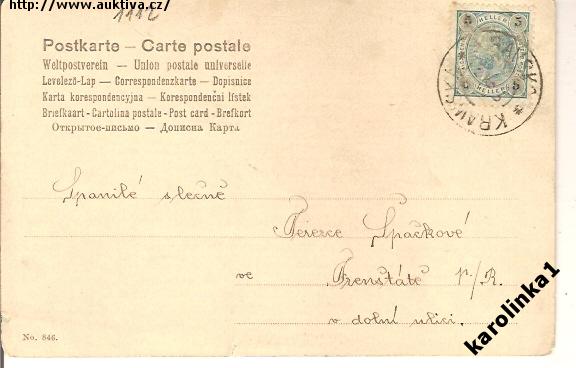 http://www.auktiva.cz/
1112
Postkarte — Carte postale
Weltpostverein — Union postale universelle
Levelező-Lap — Correspondenzkarte — Dopisnice
Karta korespondencyjna — Korespondenční lístek
Briefkaart - Cartolina postale - Post card - Brefkort
Открытое-письмо — Дописна Карта
5 HELLER 5
Spanilé slečně
Terezce Špačkové
ve Frenštátě p./R.
v dolní ulici.
No. 846.
karolinka1